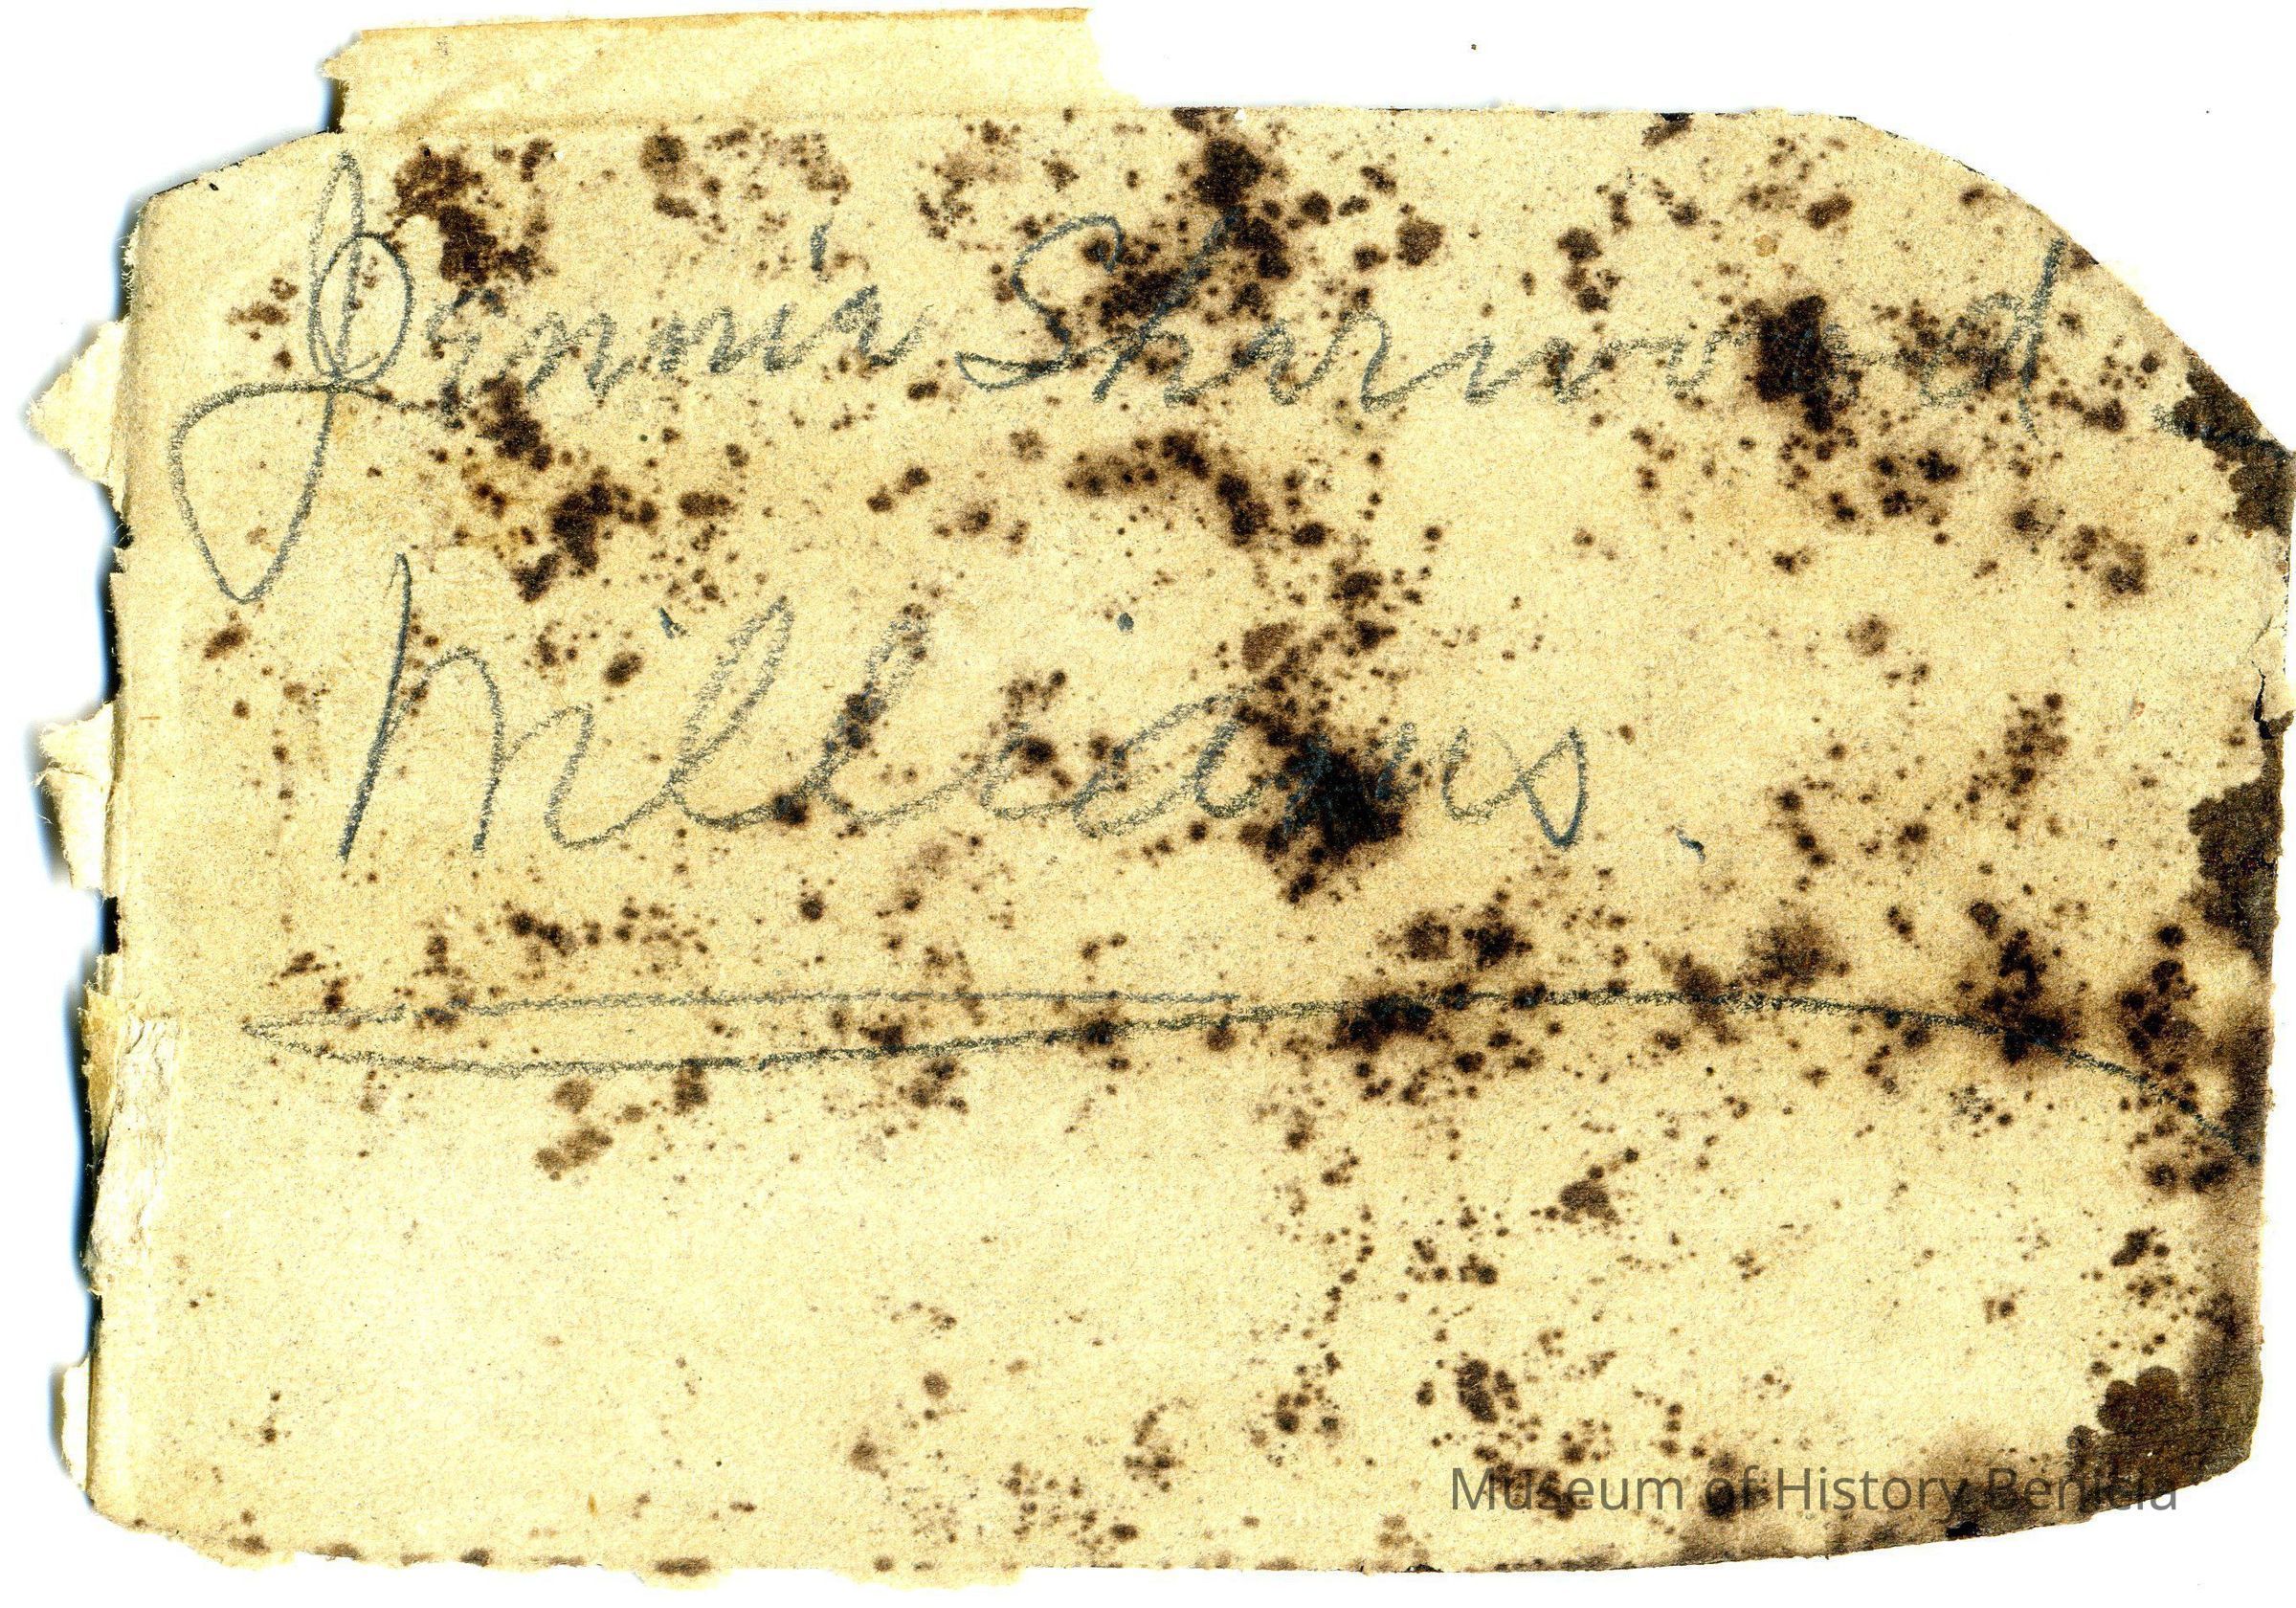 Jennie Sherwood
Williams.
Museum of History Benicia